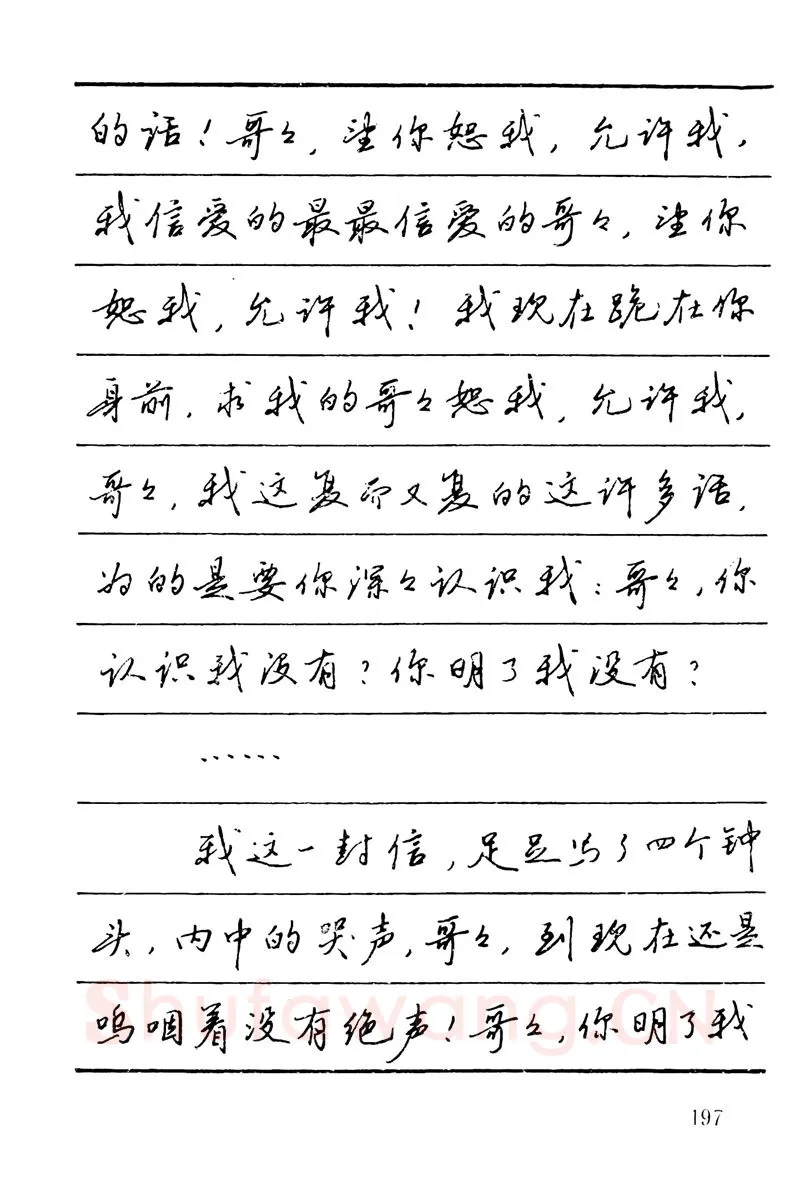 的话！哥々，望你恕我，允许我，
我信爱的最最信爱的哥々，望你
恕我，允许我！我现在跪在你
身前，求我的哥々恕我，允许我，
哥々，我这复而又复的这许多话，
为的是要你深々认识我：哥々，你
认识我没有？你明了我没有？
……
我这一封信，足足写了四个钟
头，内中的哭声，哥々，到现在还是
呜咽着没有绝声！哥々，你明了我
Shufawang.CN
197